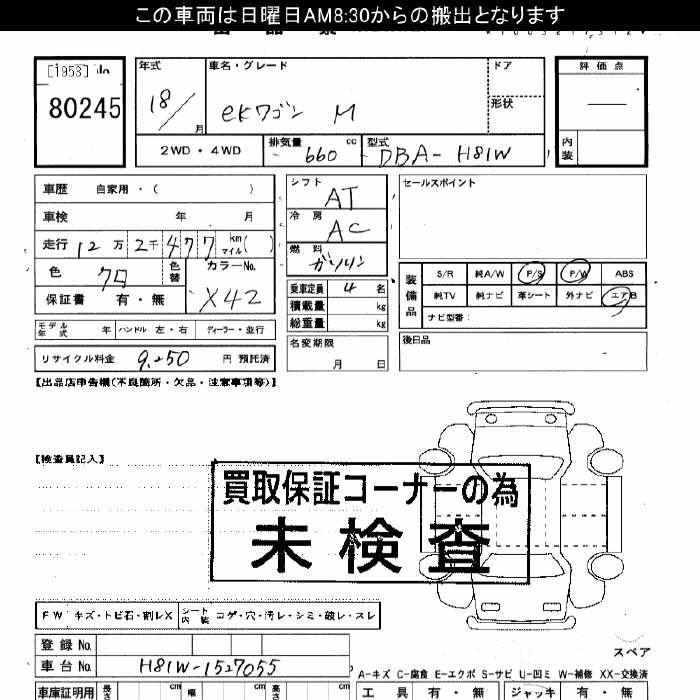 この車両は日曜日AM8:30からの搬出となります
[1953] No
80245
年式 車名・グレード ドア 評価点
18/ 月 eKワゴン M 形状
2WD・4WD 排気量 660 cc 型式 DBA-H81W 内装
車歴 自家用・( )
車検 年 月
走行 12万 2千 477 km マイル ( )
色 クロ 色替 カラーNo.
保証書 有・無 X42
モデル年式 年 ハンドル 左・右 ディーラー・並行
リサイクル料金 9,250 円 預託済
シフト AT
冷房 AC
燃料 ガソリン
乗車定員 4 名
積載量 kg
総重量 kg
名変期限
月 日
セールスポイント
装備品 S/R 純A/W P/S P/W ABS
純TV 純ナビ 革シート 外ナビ エアB
ナビ型番:
後日品
【出品店申告欄(不良箇所・欠品・注意事項等)】
【検査員記入】
買取保証コーナーの為
未検査
FW キズ・トビ石・割レX シート内装 コゲ・穴・汚レ・シミ・破レ・スレ
登録No.
車台No. H81W-1527055
スペア
A-キズ C-腐食 E-エクボ S-サビ U-凹ミ W-補修 XX-交換済
車庫証明用 長さ cm 幅 cm 高さ cm 工具 有・無 ジャッキ 有・無